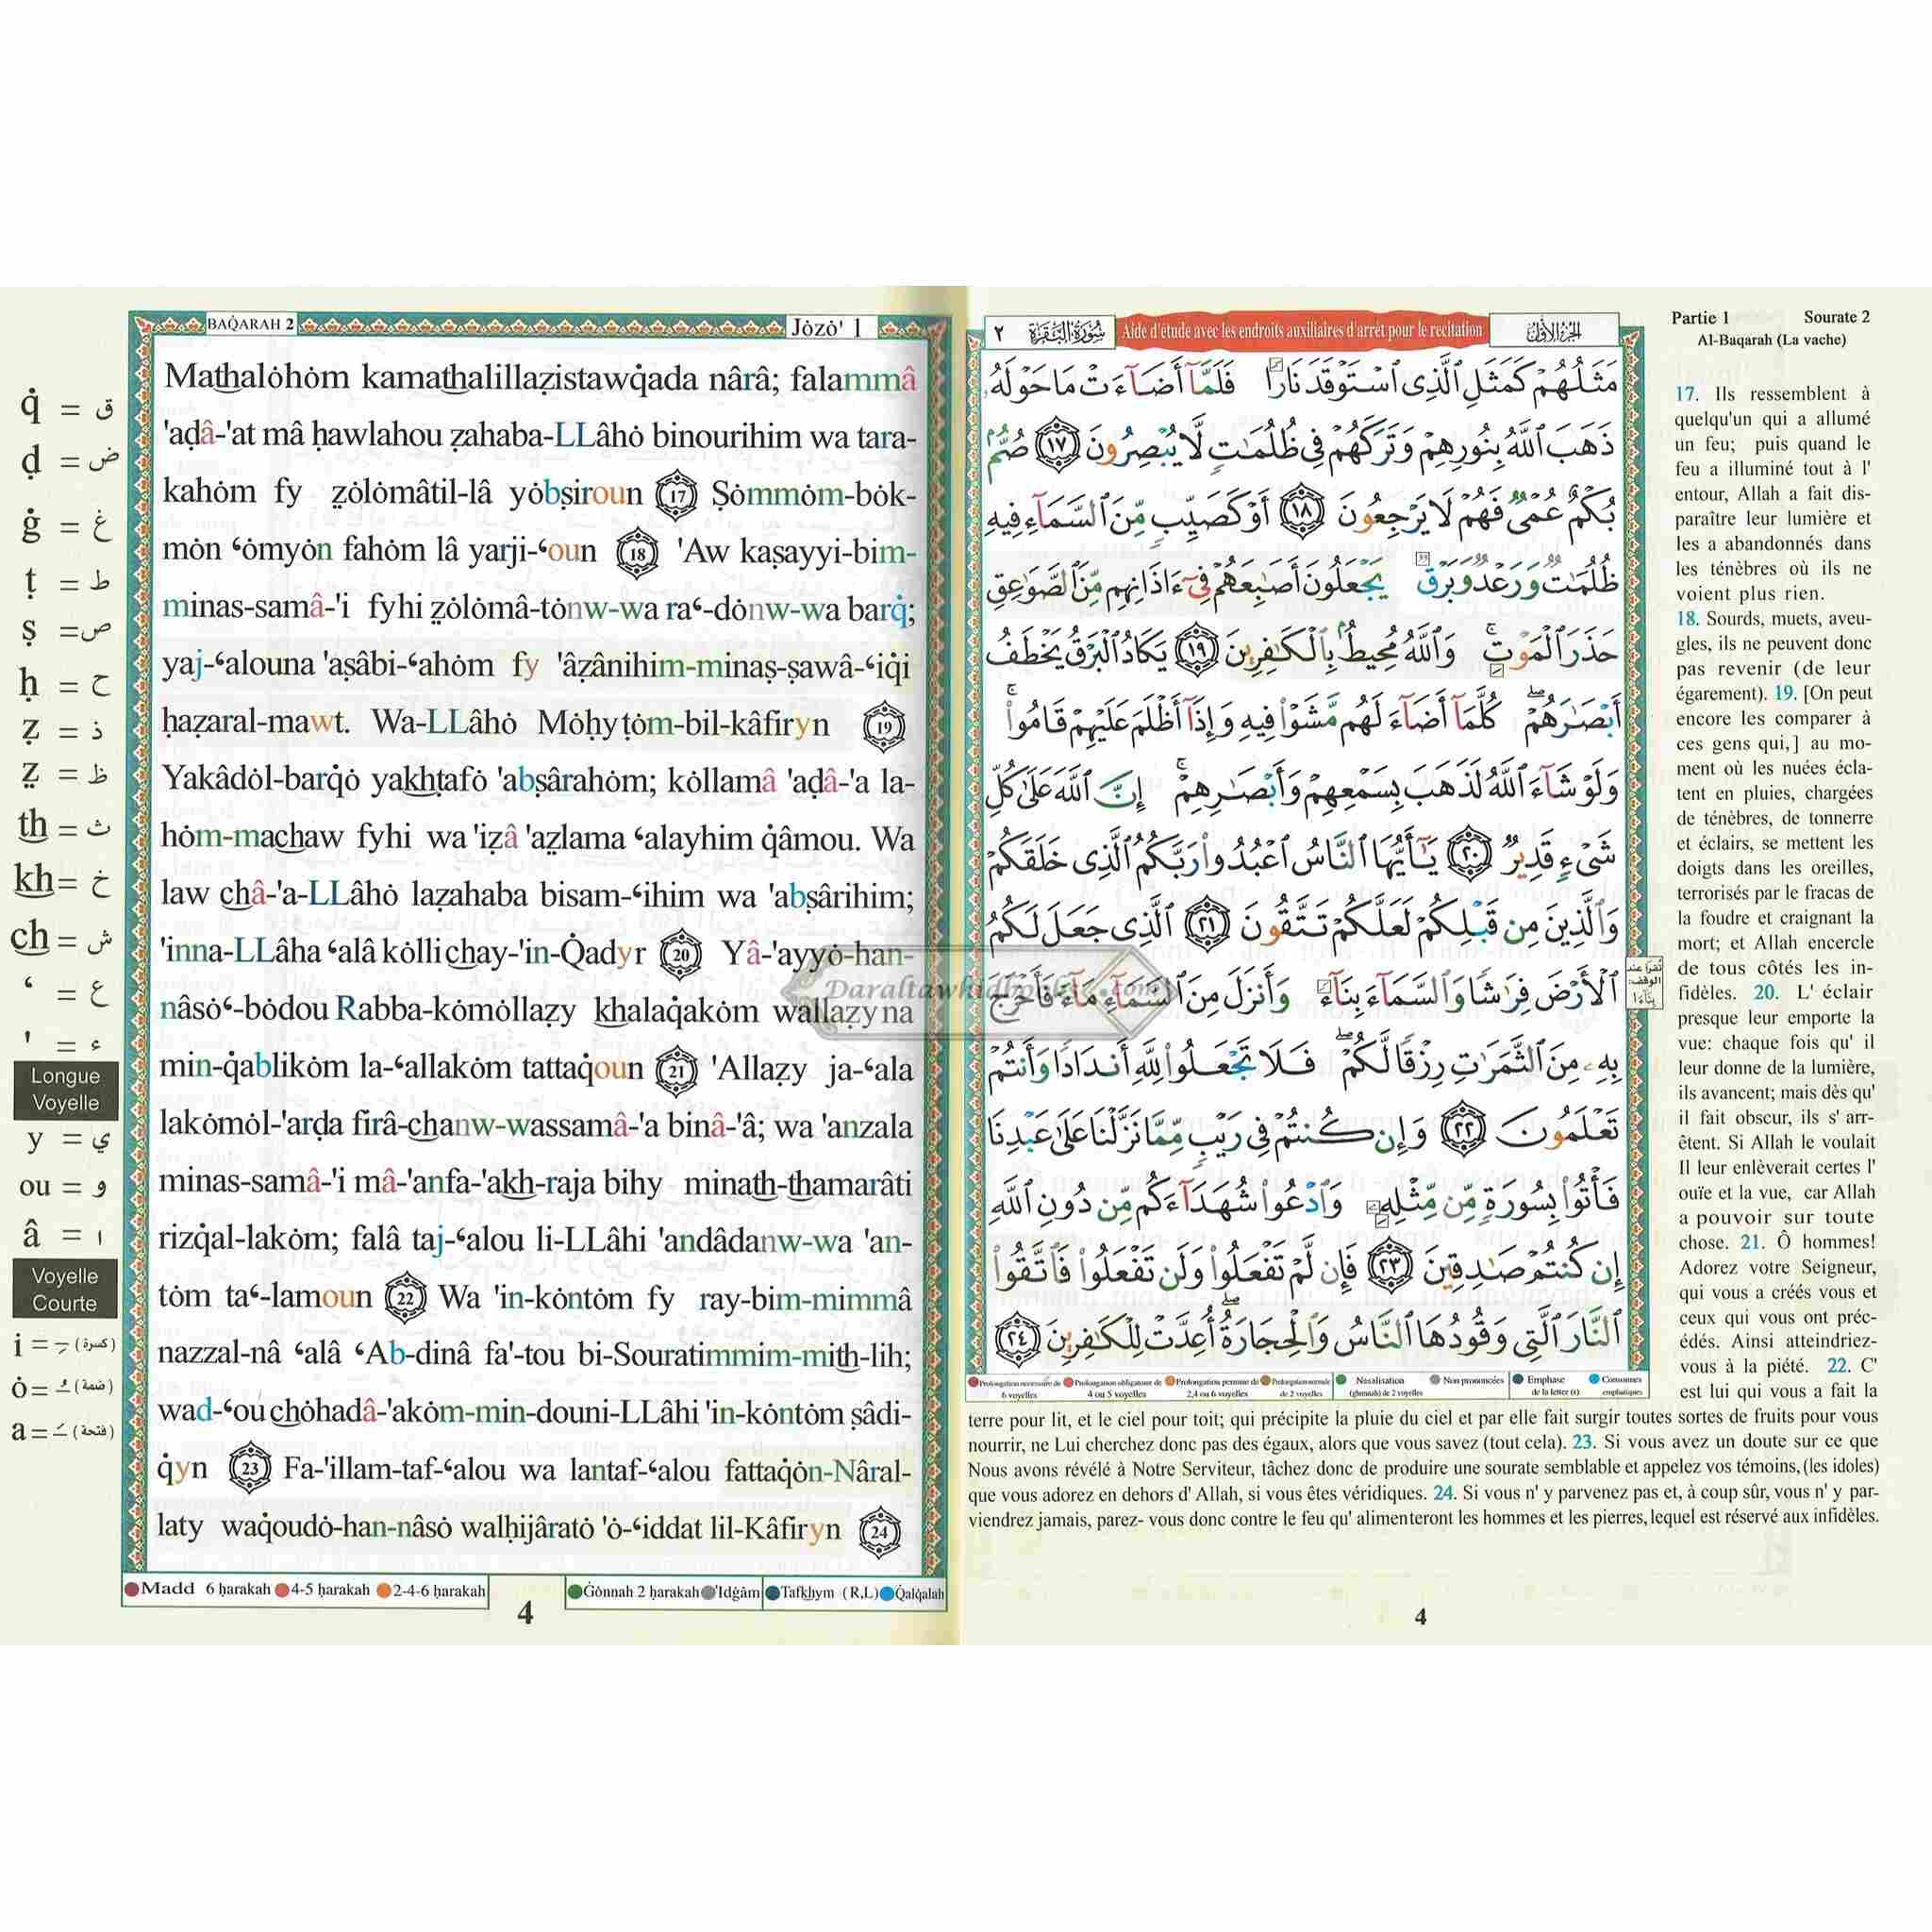 BAQ̇ARAH 2
Jȯzȯ' 1
q̇ = ق
ḍ = ض
ġ = غ
ṭ = ط
ṣ = ص
ḥ = ح
ẓ = ذ
ẓ̱ = ظ
th = ث
kh = خ
ch = ش
ʿ = ع
' = ء
Longue
Voyelle
y = ي
ou = و
â = ا
Voyelle
Courte
i = ـِ (كسرة)
ȯ = ـُ (ضمة)
a = ـَ (فتحة)
Mathalȯhȯm kamathalillaẓistawq̇ada nârâ; falammâ
'aḍâ-'at mâ ḥawlahou ẓahaba-LLâhȯ binourihim wa tara-
kahȯm fy ẓ̱ȯlȯmâtil-lâ yȯbṣiroun 17 Ṣȯmmȯm-bȯk-
mȯn ʿȯmyȯn fahȯm lâ yarji-ʿoun 18 'Aw kaṣayyi-bim-
minas-samâ-'i fyhi ẓ̱ȯlȯmâ-tȯnw-wa raʿ-dȯnw-wa barq̇;
yaj-ʿalouna 'aṣâbi-ʿahȯm fy 'âẓânihim-minaṣ-ṣawâ-ʿiq̇i
ḥaẓaral-mawt. Wa-LLâhȯ Mȯḥyṭȯm-bil-kâfiryn 19
Yakâdȯl-barq̇ȯ yakhṭafȯ 'abṣârahȯm; kȯllamâ 'aḍâ-'a la-
hȯm-machaw fyhi wa 'iẓâ 'aẓ̱lama ʿalayhim q̇âmou. Wa
law châ-'a-LLâhȯ laẓahaba bisam-ʿihim wa 'abṣârihim;
'inna-LLâha ʿalâ kȯlli chay-'in-Q̇adyr 20 Yâ-'ayyȯ-han-
nâsȯʿ-bȯdou Rabba-kȯmȯllaẓy khalaq̇akȯm wallaẓyna
min-q̇ablikȯm la-ʿallakȯm tattaq̇oun 21 'Allaẓy ja-ʿala
lakȯmȯl-'arḍa firâ-chanw-wassamâ-'a binâ-'â; wa 'anzala
minas-samâ-'i mâ-'anfa-'akh-raja bihy minath-thamarâti
rizq̇al-lakȯm; falâ taj-ʿalou li-LLâhi 'andâdanw-wa 'an-
tȯm taʿ-lamoun 22 Wa 'in-kȯntȯm fy ray-bim-mimmâ
nazzal-nâ ʿalâ ʿAb-dinâ fa'-tou bi-Souratimmim-mith-lih;
wad-ʿou chȯhadâ-'akȯm-min-douni-LLâhi 'in-kȯntȯm ṣâdi-
q̇yn 23 Fa-'illam-taf-ʿalou wa lantaf-ʿalou fattaq̇ȯn-Nâral-
laty waq̇oudȯ-han-nâsȯ walḥijâratȯ 'ȯ-ʿiddat lil-Kâfiryn 24
Madd 6 ḥarakah 4-5 ḥarakah 2-4-6 ḥarakah
Ġȯnnah 2 ḥarakah 'Idġâm Tafkhym (R,L) Q̇alq̇alah
4
٢ سُورَةُ البَقَرَة
Aide d'étude avec les endroits auxiliaires d'arrêt pour le recitation
الجزء الأول
مَثَلُهُمْ كَمَثَلِ ٱلَّذِى ٱسْتَوْقَدَ نَارًا فَلَمَّآ أَضَآءَتْ مَا حَوْلَهُۥ
ذَهَبَ ٱللَّهُ بِنُورِهِمْ وَتَرَكَهُمْ فِى ظُلُمَٰتٍ لَّا يُبْصِرُونَ ١٧ صُمٌّۢ
بُكْمٌ عُمْىٌ فَهُمْ لَا يَرْجِعُونَ ١٨ أَوْ كَصَيِّبٍ مِّنَ ٱلسَّمَآءِ فِيهِ
ظُلُمَٰتٌ وَرَعْدٌ وَبَرْقٌ يَجْعَلُونَ أَصَٰبِعَهُمْ فِىٓ ءَاذَانِهِم مِّنَ ٱلصَّوَٰعِقِ
حَذَرَ ٱلْمَوْتِ ۚ وَٱللَّهُ مُحِيطٌۢ بِٱلْكَٰفِرِينَ ١٩ يَكَادُ ٱلْبَرْقُ يَخْطَفُ
أَبْصَٰرَهُمْ ۖ كُلَّمَآ أَضَآءَ لَهُم مَّشَوْا۟ فِيهِ وَإِذَآ أَظْلَمَ عَلَيْهِمْ قَامُوا۟ ۚ
وَلَوْ شَآءَ ٱللَّهُ لَذَهَبَ بِسَمْعِهِمْ وَأَبْصَٰرِهِمْ ۚ إِنَّ ٱللَّهَ عَلَىٰ كُلِّ
شَىْءٍ قَدِيرٌ ٢٠ يَٰٓأَيُّهَا ٱلنَّاسُ ٱعْبُدُوا۟ رَبَّكُمُ ٱلَّذِى خَلَقَكُمْ
وَٱلَّذِينَ مِن قَبْلِكُمْ لَعَلَّكُمْ تَتَّقُونَ ٢١ ٱلَّذِى جَعَلَ لَكُمُ
ٱلْأَرْضَ فِرَٰشًا وَٱلسَّمَآءَ بِنَآءً وَأَنزَلَ مِنَ ٱلسَّمَآءِ مَآءً فَأَخْرَجَ
بِهِۦ مِنَ ٱلثَّمَرَٰتِ رِزْقًا لَّكُمْ ۖ فَلَا تَجْعَلُوا۟ لِلَّهِ أَندَادًا وَأَنتُمْ
تَعْلَمُونَ ٢٢ وَإِن كُنتُمْ فِى رَيْبٍ مِّمَّا نَزَّلْنَا عَلَىٰ عَبْدِنَا
فَأْتُوا۟ بِسُورَةٍ مِّن مِّثْلِهِۦ وَٱدْعُوا۟ شُهَدَآءَكُم مِّن دُونِ ٱللَّهِ
إِن كُنتُمْ صَٰدِقِينَ ٢٣ فَإِن لَّمْ تَفْعَلُوا۟ وَلَن تَفْعَلُوا۟ فَٱتَّقُوا۟
ٱلنَّارَ ٱلَّتِى وَقُودُهَا ٱلنَّاسُ وَٱلْحِجَارَةُ ۖ أُعِدَّتْ لِلْكَٰفِرِينَ ٢٤
تُقرأ عند
الوقف:
بناءا
Daraltawhidbooks.com
Prolongation nécessaire de 6 voyelles
Prolongation obligatoire de 4 ou 5 voyelles
Prolongation permise de 2,4 ou 6 voyelles
Prolongation normale de 2 voyelles
Nasalisation (ghunnah) de 2 voyelles
Non prononcées
Emphase de la lettre (r)
Consonnes emphatiques
Partie 1 Sourate 2
Al-Baqarah (La vache)
17. Ils ressemblent à
quelqu'un qui a allumé
un feu; puis quand le
feu a illuminé tout à l'
entour, Allah a fait dis-
paraître leur lumière et
les a abandonnés dans
les ténèbres où ils ne
voient plus rien.
18. Sourds, muets, aveu-
gles, ils ne peuvent donc
pas revenir (de leur
égarement). 19. [On peut
encore les comparer à
ces gens qui,] au mo-
ment où les nuées écla-
tent en pluies, chargées
de ténèbres, de tonnerre
et éclairs, se mettent les
doigts dans les oreilles,
terrorisés par le fracas de
la foudre et craignant la
mort; et Allah encercle
de tous côtés les in-
fidèles. 20. L' éclair
presque leur emporte la
vue: chaque fois qu' il
leur donne de la lumière,
ils avancent; mais dès qu'
il fait obscur, ils s' arr-
êtent. Si Allah le voulait
Il leur enlèverait certes l'
ouïe et la vue, car Allah
a pouvoir sur toute
chose. 21. Ô hommes!
Adorez votre Seigneur,
qui vous a créés vous et
ceux qui vous ont préc-
édés. Ainsi atteindriez-
vous à la piété. 22. C'
est lui qui vous a fait la
terre pour lit, et le ciel pour toit; qui précipite la pluie du ciel et par elle fait surgir toutes sortes de fruits pour vous
nourrir, ne Lui cherchez donc pas des égaux, alors que vous savez (tout cela). 23. Si vous avez un doute sur ce que
Nous avons révélé à Notre Serviteur, tâchez donc de produire une sourate semblable et appelez vos témoins, (les idoles)
que vous adorez en dehors d' Allah, si vous êtes véridiques. 24. Si vous n' y parvenez pas et, à coup sûr, vous n' y par-
viendrez jamais, parez- vous donc contre le feu qu' alimenteront les hommes et les pierres, lequel est réservé aux infidèles.
4